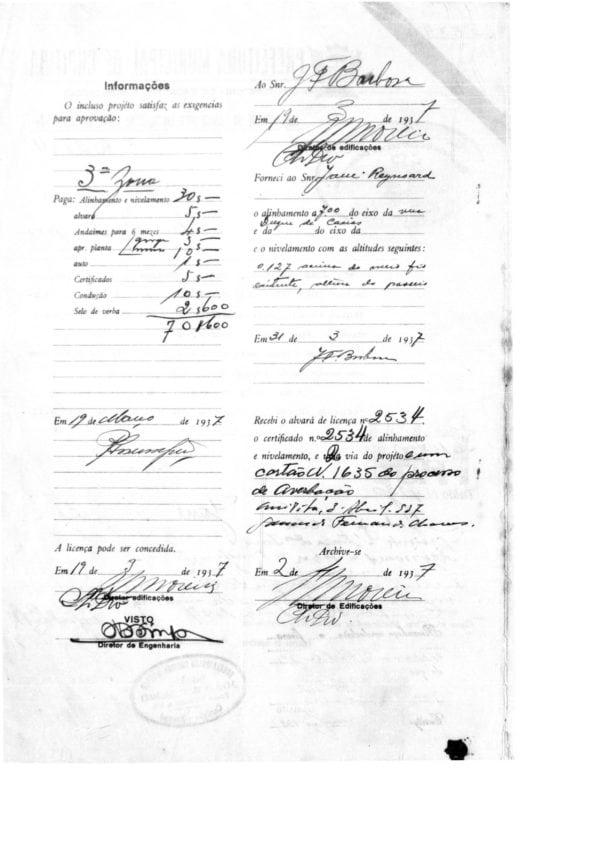 Informações
O incluso projéto satisfaz as exigencias
para aprovação:
3ª Zona
Paga: Alinhamento e nivelamento 30$—
alvará 5$—
Andaimes para 6 mezes 4$—
apr. planta 3—
10$—
auto 1$—
Certificados 5$—
Condução 10$—
Selo de verba 2$600
70$600
Em 19 de Março de 1937
A licença pode ser concedida.
Em 19 de 3 de 1937
Diretor edificações
VISTO
Diretor de Engenharia
Ao Snr. J F Barbosa
Em 19 de 3 de 1937
Diretor de edificações
Forneci ao Snr.
o alinhamento a 7.00 do eixo da rua
Duque de Caxias
e da do eixo da
e o nivelamento com as altitudes seguintes:
0,127 acima do meio fio
existente, altura do passeio
Em 31 de 3 de 1937
J.F. Barbosa
Recebi o alvará de licença nº 2534.
o certificado n.º 2534 de alinhamento
e nivelamento, e via do projéto e um
cartão N. 1635 do processo
de Averbação
Fernandes Chaves.
Archive-se
Em 2 de 4 de 1937
Diretor de Edificações